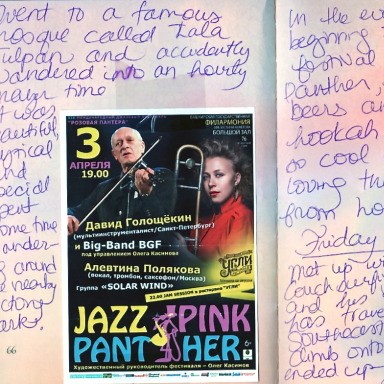 went to a famous
mosque called Lala
Tulpan and accidently
wandered into an hourly
prayer time
It was
beautiful,
typical
and
special
spent
some time
wander-
ing around
nearby
park.
66
"РОЗОВАЯ ПАНТЕРА"
ФИЛАРМОНИЯ
БОЛЬШОЙ ЗАЛ
3
АПРЕЛЯ
19.00
Давид Голощёкин
(мультиинструменталист/Санкт-Петербург)
и Big-Band BGF
под управлением Олега Касимова
Алевтина Полякова
(вокал, тромбон, саксофон/Москва)
Группа «SOLAR WIND»
УГЛИ
22.00 JAM SESSION в ресторане "УГЛИ"
JAZZ PINK
PANTHER
6+
Художественный руководитель фестиваля – Олег Касимов
In the
beginning
festival
Panther,
beers and
hookah
so cool
loving th
from ho
Friday
met up w
couchsurf
and his
has trave
Southeast
climb onto
ended up